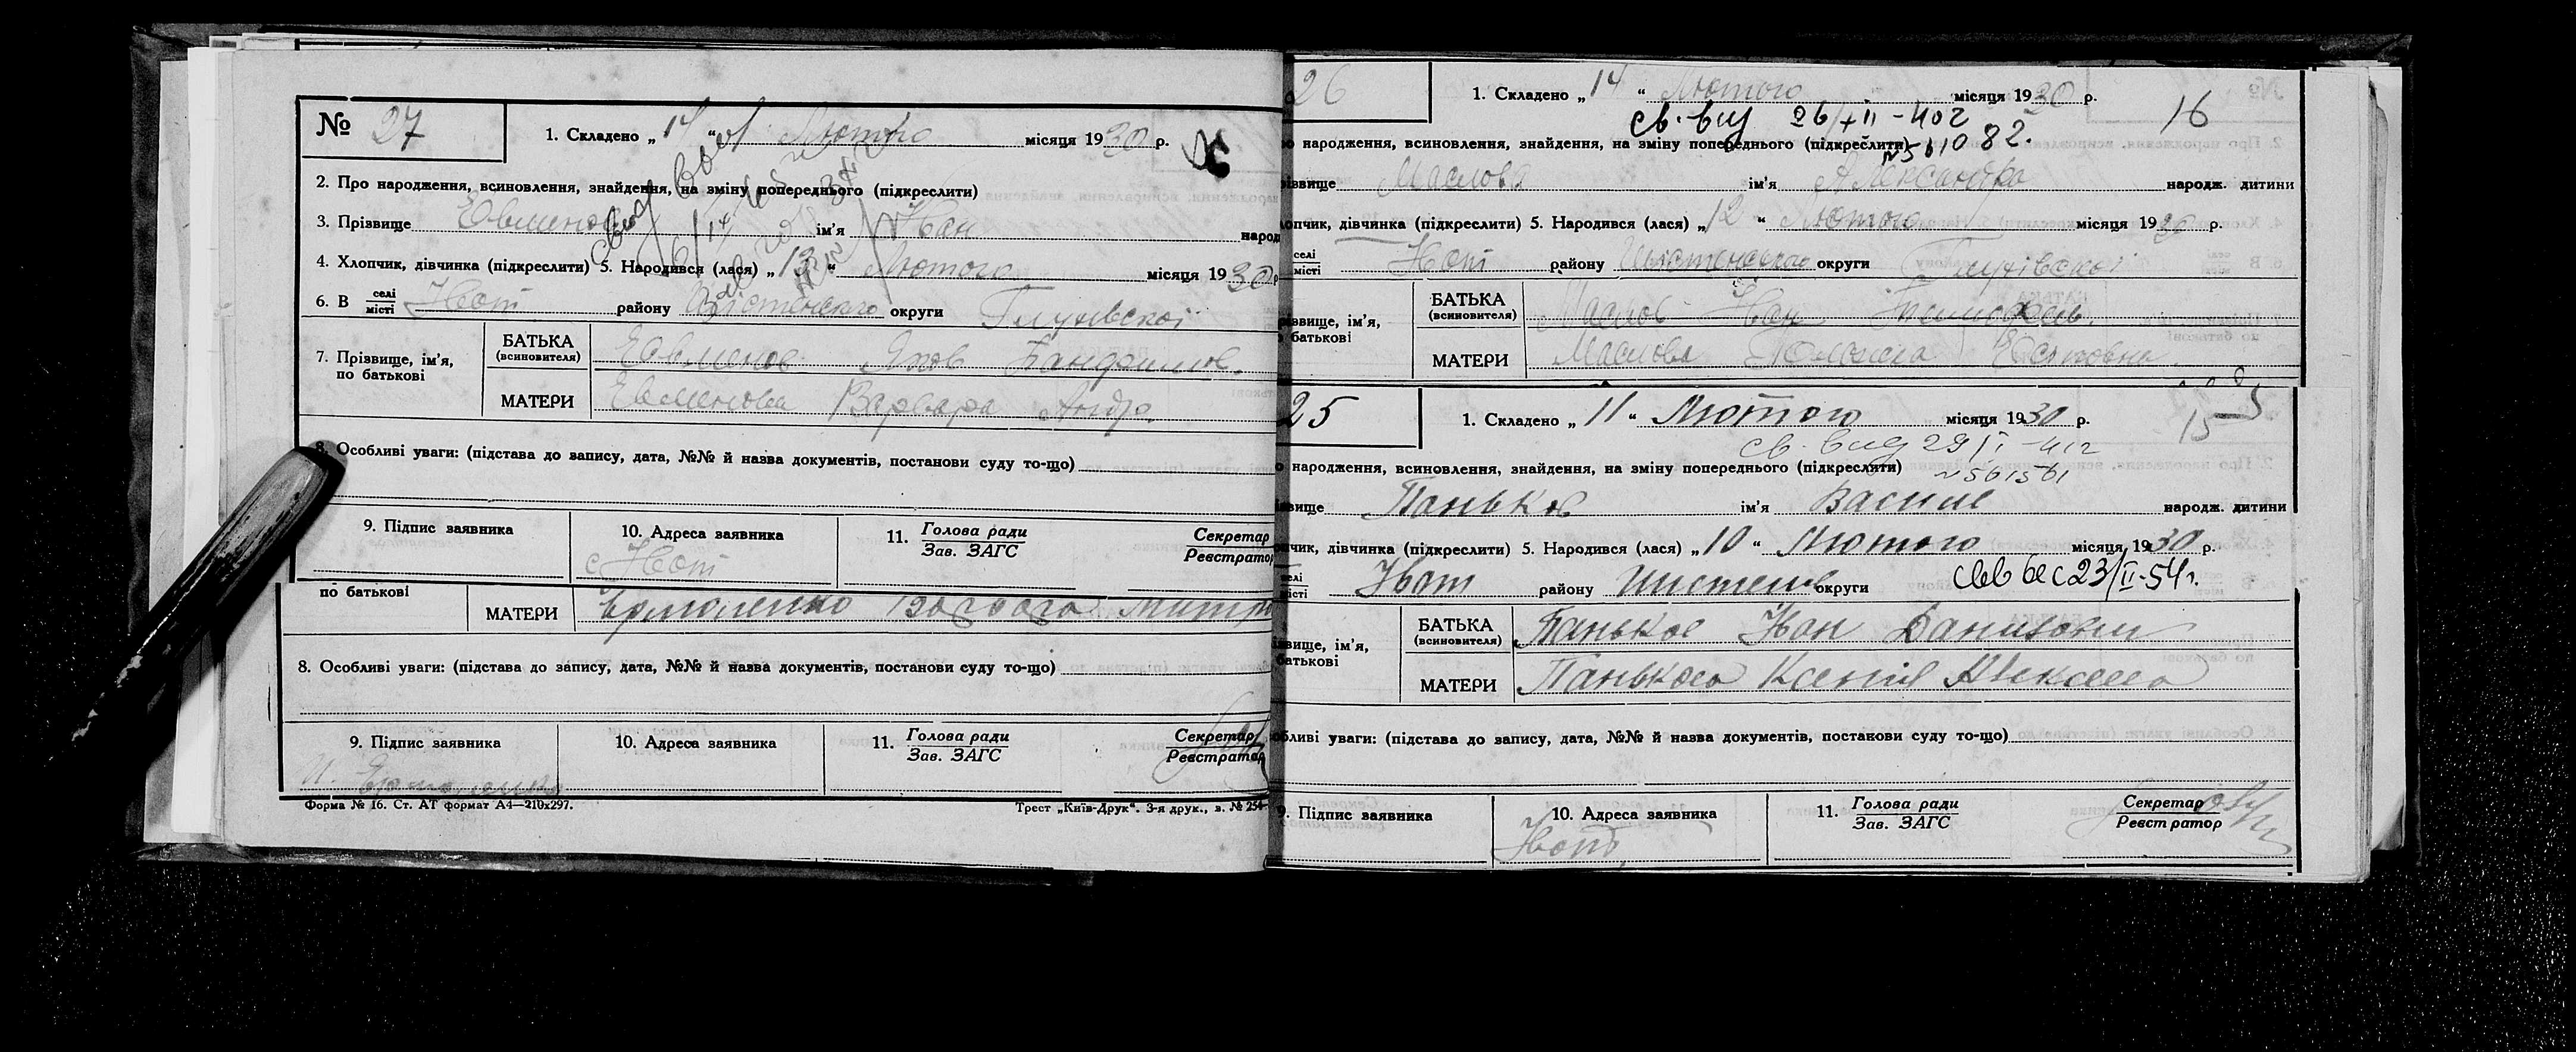 № 27
1. Складено „ 14 “ Лютого місяця 1930 р.
2. Про народження, всиновлення, знайдення, на зміну попереднього (підкреслити)
3. Прізвище Евменов ім'я Иван народ
4. Хлопчик, дівчинка (підкреслити) 5. Народився (лася) „ 13 “ Лютого місяця 1930 р
6. В селі місті Ивот району округи Глухівскої
7. Прізвище, ім'я, по батькові
БАТЬКА (всиновителя) Евменов Яков Панфилов.
МАТЕРИ Евменова Варвара Андр.
8. Особливі уваги: (підстава до запису, дата, №№ й назва документів, постанови суду то-що)
9. Підпис заявника 10. Адреса заявника 11. Голова ради Секретар
Зав. ЗАГС Реєстратор
с Ивот
по батькові
МАТЕРИ Ермоленко Митр
8. Особливі уваги: (підстава до запису, дата, №№ й назва документів, постанови суду то-що)
9. Підпис заявника 10. Адреса заявника 11. Голова ради Секретар
Зав. ЗАГС Реєстратор
Форма № 16. Ст. АТ формат А4—210х297. Трест „Київ-Друк“. 3-я друк., з. № 254
26
1. Складено „ 14 “ Лютого місяця 1930 р.
св. выд 26/XII-40г 16
о народження, всиновлення, знайдення, на зміну попереднього (підкреслити)
звище Маслова ім'я Александра народж. дитини
лопчик, дівчинка (підкреслити) 5. Народився (лася) „ 12 “ Лютого місяця 1930 р.
селі місті Ивот району округи Глухівскої
звище, ім'я, батькові
БАТЬКА (всиновителя) Маслов Иван
МАТЕРИ Маслова
25
1. Складено „ 11 “ Лютого місяця 1930 р.
15
св. выд 29/I-41г
о народження, всиновлення, знайдення, на зміну попереднього (підкреслити)
№ 561561
звище Паньков ім'я Василе народж. дитини
чик, дівчинка (підкреслити) 5. Народився (лася) „ 10 “ Лютого місяця 1930 р.
елі місті Ивот району округи
23/II-54г.
звище, ім'я, батькові
БАТЬКА (всиновителя) Паньков Иван Данилович
МАТЕРИ Панькова Ксения
бливі уваги: (підстава до запису, дата, №№ й назва документів, постанови суду то-що)
9. Підпис заявника 10. Адреса заявника 11. Голова ради Секретар
Зав. ЗАГС Реєстратор
Ивот